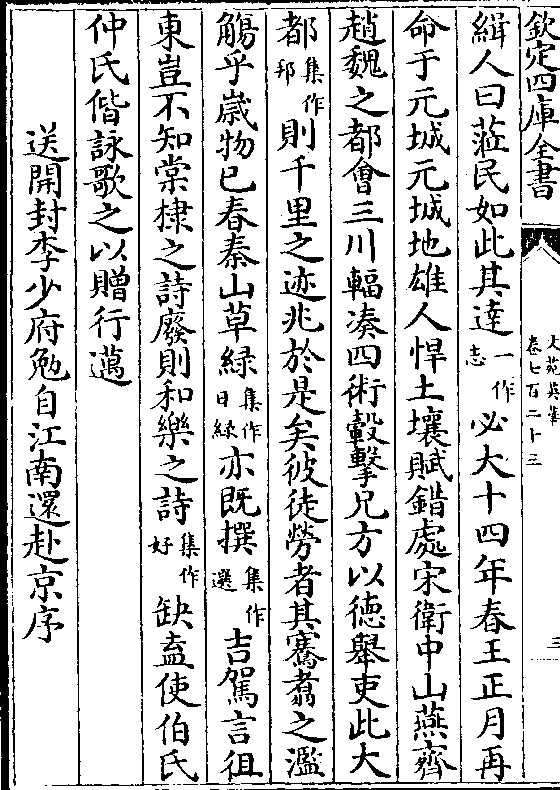 欽定四庫全書
文苑英華
卷七百二十三
三
緝人曰蒞民如此其達一作志必大十四年春王正月再
命于元城元城地雄人悍土壤賦錯處宋衛中山燕齊
趙魏之都會三川輻凑四術轂擊兄方以徳舉吏此大
都集作邦則千里之迹兆於是矣彼徒勞者其騫翥之濫
觴乎嵗物已春秦山草緑集作日緑亦既撰集作選吉駕言徂
東豈不知棠棣之詩廢則和樂之詩集作好缺盍使伯氏
仲氏偕詠歌之以贈行邁
送開封李少府勉自江南還赴京序